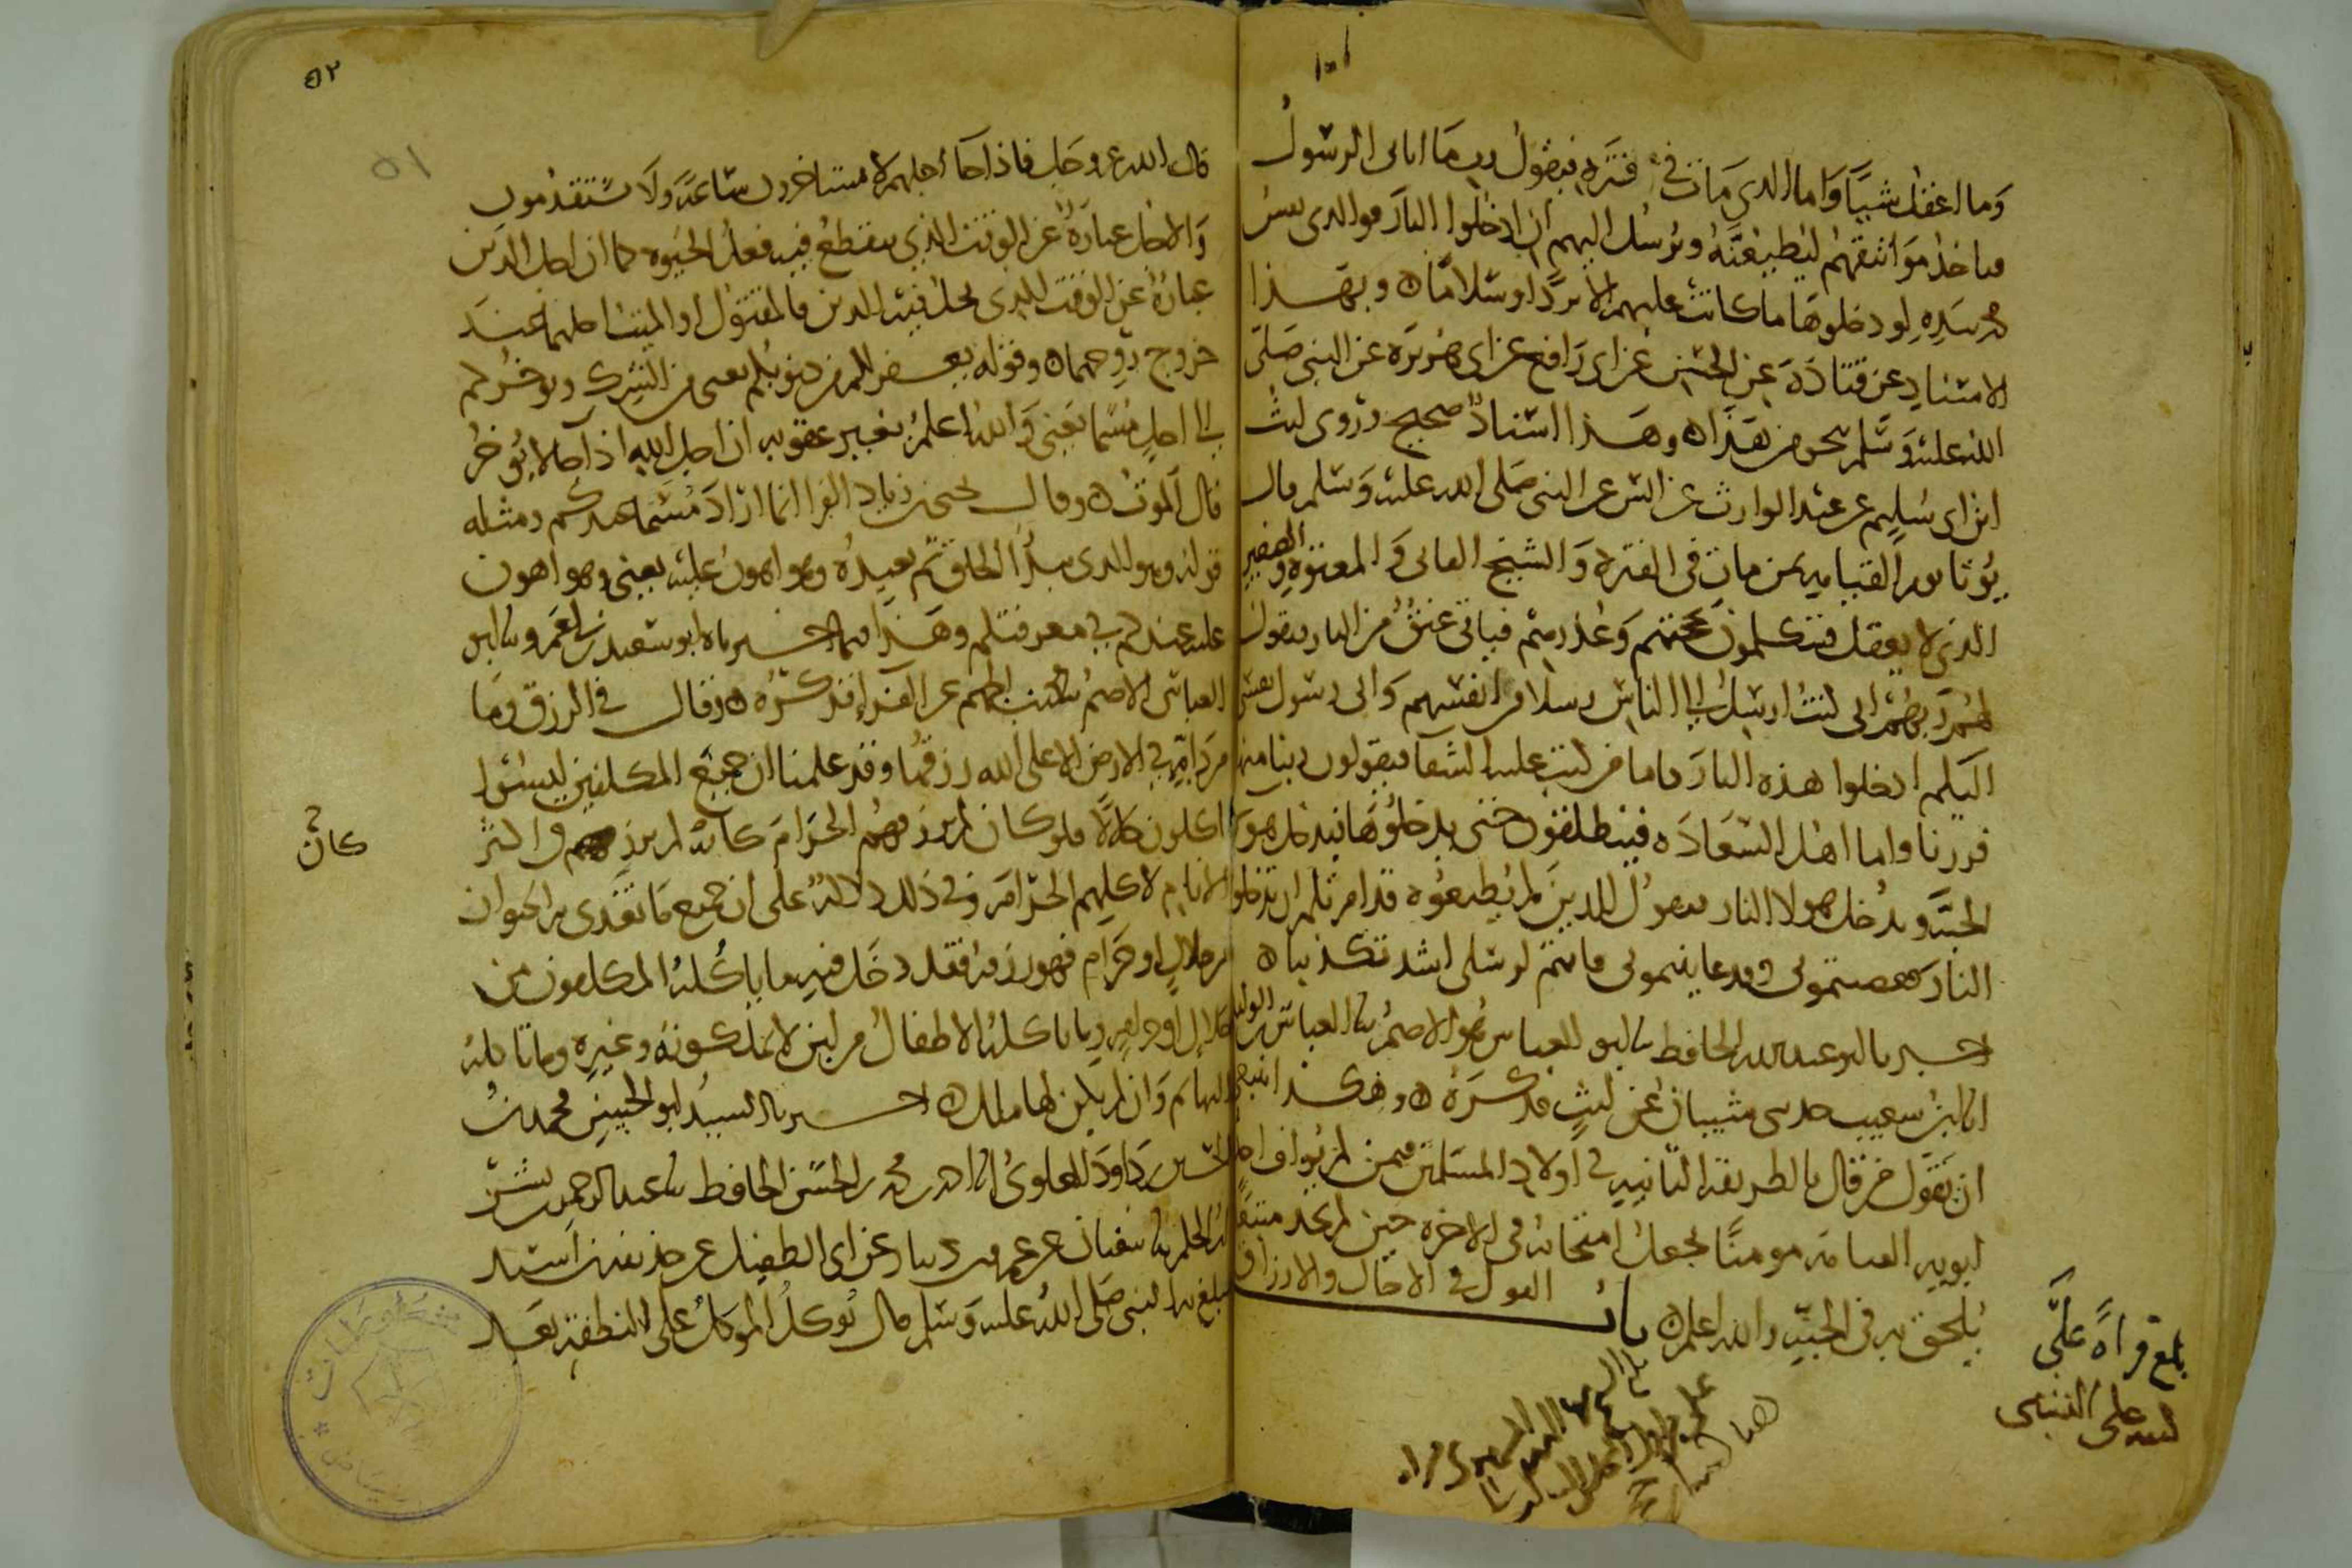 وما اعقل شيئا واما الذي مات في فترة فيقول رب ما اتاني الرسول
فياخذ مواثيقهم ليطيعنه ويرسل اليهم ان ادخلوا النار فوالذي نفس
محمد بيده لو دخلوها ما كانت عليهم الا بردا وسلاما ه وبهذا
الاسناد عن قتادة عن الحسن عن ابي رافع عن ابي هريرة عن النبي صلى
الله عليه وسلم بنحو من هذا ه وهذا اسناد صحيح وروى ليث
ابن ابي سليم عن عبد الوارث عن انس عن النبي صلى الله عليه وسلم قال
يوتا يوم القيامه بمن مات في الفترة والشيخ الفاني والمعتوه والصغير
الذي لا يعقل فيتكلمون بحجتهم وعذرهم فياتي عنق من النار فيقول
لهم ربهم اني كنت ارسل الى الناس رسلا من انفسهم واني رسول نفسي
اليكم ادخلوا هذه النار فاما من كتب عليه الشقا فيقولون ربنا منها
فررنا واما اهل السعادة فينطلقون حتى يدخلوها فيدخل هولا
الجنة ويدخل هولا النار فيقول للذين لم يطيعوه قد امرتكم ان تدخلوا
النار فعصيتموني وقد عاينتموني فانتم لرسلي اشد تكذيبا ه
اخبرنا ابو عبد الله الحافظ نا ابو العباس هو الاصم نا العباس بن الوليد
انا ابن شعيب حدثني شيبان عن ليث فذكره ه وهكذا ينبغي
ان يقول من قال بالطريقة الثانيه في اولاد المسلمين فيمن لم يواف احد
ابويه القيامة مومنا بجعل امتحانه في الاخرة حين لم يجد متبعا
يلحق به في الجنة والله اعلم ه باب القول في الاجال والارزاق
بلغ قراة علي
علي
٥٢
٥١
قال الله عز وجل فاذا جا اجلهم لا يستاخرون ساعة ولا يستقدمون
والاجل عبارة عن الوقت الذي ينقطع فيه فعل الحيوه كما ان اجل الدين
عبارة عن الوقت الذي يحل فيه الدين فالمقتول او الميت اجلهما عند
خروج روحهما ه وقوله يغفر لكم من ذنوبكم يعني من الشرك ويوخركم
الى اجل مسما يعني والله اعلم بغير عقوبه ان اجل الله اذا جا لا يوخر
قال الموت ه وقال يحيى بن زياد الفرا انما اراد مسما عندكم ومثله
قوله وهو الذي يبدا الخلق ثم يعيده وهو اهون عليه يعني وهو اهون
عليه عندكم في معرفتكم وهذا فيما اخبرناه ابو سعيد بن ابي عمرو نا ابو
العباس الاصم نا محمد بن الجهم عن الفرا فذكره ه وقال في الرزق وما
من دابة في الارض الا على الله رزقها وقد علمنا ان جميع المكلفين ليسوا
اكلون حلالا فلو كان لم يرزقهم الحرام كان لم يرزقهم واكثر
كان
الانام لاكلهم الحرام وفي ذلك دلالة على ان جميع ما تغذى به الحيوان
من حلال او حرام فهو رزقه فقد دخل فيه ما ياكله المكلفون من
حلال او حرام وما ياكله الاطفال من لبن لا يملكونه وغيره وما تاكله
البهائم وان لم يكن لها ملك ه اخبرنا السيد ابو الحسين محمد بن
الحسين بن داود العلوي انا احمد بن محمد بن الحسن الحافظ نا عبد الرحمن بن بشر
بن الحكم نا سفيان عن عمرو بن دينار عن ابي الطفيل عن حذيفة بن اسيد
يبلغ به النبي صلى الله عليه وسلم قال يوكل الموكل على النطفة بعد